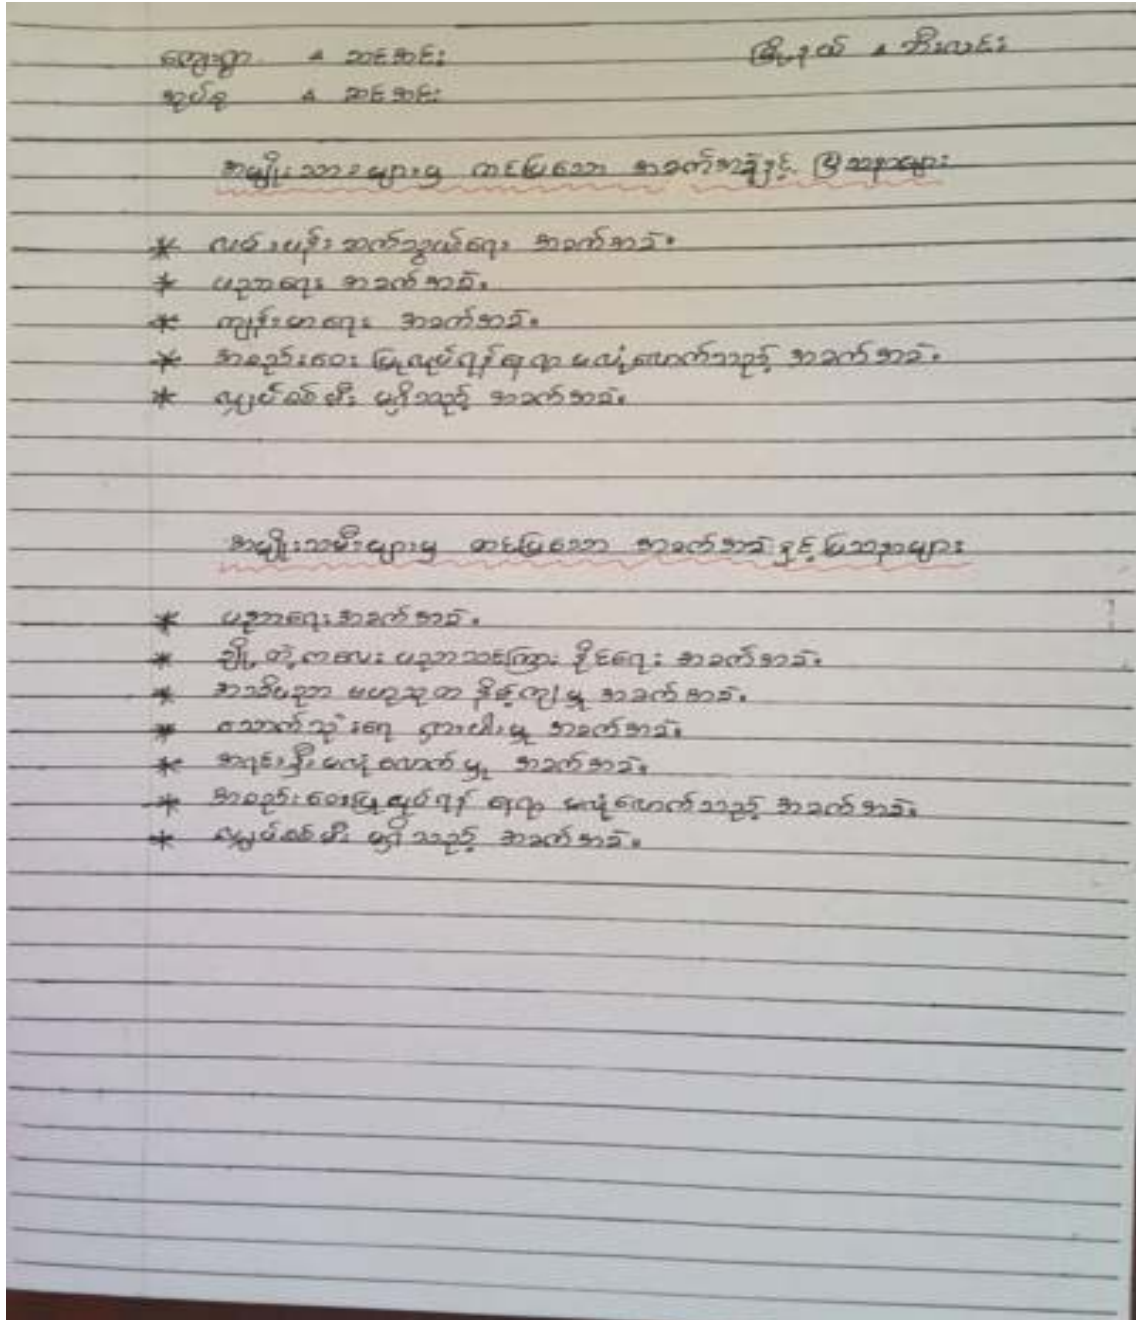 ကျေးရွာ ။ ဆင်အင်း မြို့နယ် ။ ဘီးလင်း
အုပ်စု ။ ဆင်အင်း
အမျိုးသားများမှ တင်ပြသော အခက်အခဲနှင့် ပြဿနာများ
* လမ်းပန်းဆက်သွယ်ရေး အခက်အခဲ။
* ပညာရေး အခက်အခဲ။
* ကျန်းမာရေး အခက်အခဲ။
* အစည်းဝေး ပြုလုပ်ရန် နေရာ မလုံလောက်သည့် အခက်အခဲ။
* လျှပ်စစ်မီး မရှိသည့် အခက်အခဲ။
အမျိုးသမီးများမှ တင်ပြသော အခက်အခဲ နှင့် ပြဿနာများ
* ပညာရေး အခက်အခဲ။
* ချို့တဲ့ကလေး ပညာသင်ကြား နိုင်ရေး အခက်အခဲ။
* အသိပညာ ဗဟုသုတ နိမ့်ကျမှု အခက်အခဲ။
* သောက်သုံးရေ ရှားပါးမှု အခက်အခဲ။
* အရင်းနှီး မလုံလောက်မှု အခက်အခဲ။
* အစည်းဝေးပြုလုပ်ရန် နေရာ မလုံလောက်သည့် အခက်အခဲ။
* လျှပ်စစ်မီး မရှိသည့် အခက်အခဲ။